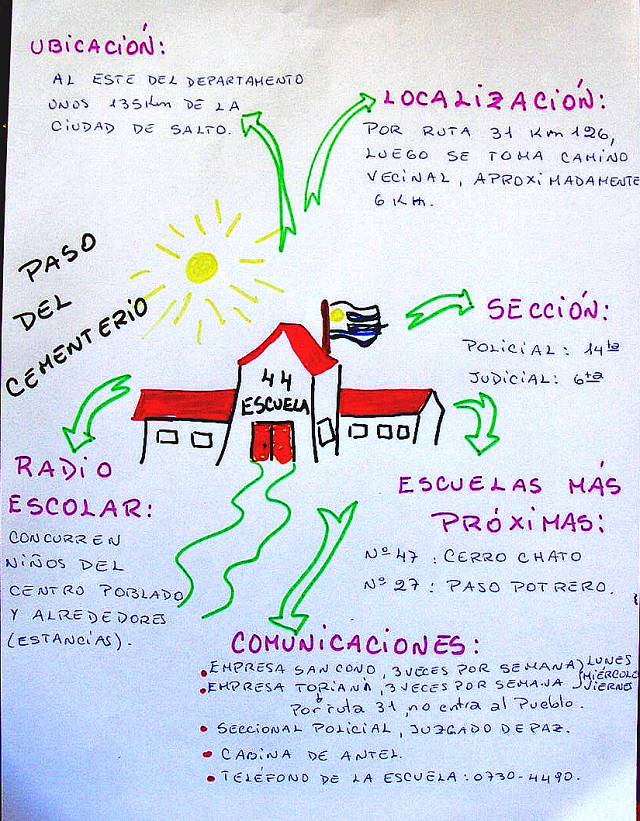 UBICACIÓN:
AL ESTE DEL DEPARTAMENTO
UNOS 135 Km DE LA
CIUDAD DE SALTO.
LOCALIZACIÓN:
POR RUTA 31 Km 126,
LUEGO SE TOMA CAMINO
VECINAL, APROXIMADAMENTE
6 Km.
PASO
DEL
CEMENTERIO
SECCIÓN:
POLICIAL: 14ta
JUDICIAL: 6ta
44
ESCUELA
RADIO
ESCOLAR:
CONCURREN
NIÑOS DEL
CENTRO POBLADO
Y ALREDEDORES
(ESTANCÍAS).
ESCUELAS MÁS
PRÓXIMAS:
Nº 47 : CERRO CHATO
Nº 27 : PASO POTRERO.
COMUNICACIONES:
• EMPRESA SAN CONO, 3 VECES POR SEMANA) LUNES
• EMPRESA TORIANI, 3 VECES POR SEMANA MIÉRCOLE VIERNES
Por ruta 31, no entra al Pueblo.
• SECCIONAL POLICIAL, JUZGADO DE PAZ.
• CABINA DE ANTEL.
• TELÉFONO DE LA ESCUELA: 0730-4490.